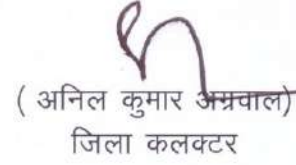 ( अनिल कुमार अग्रवाल)
जिला कलक्टर